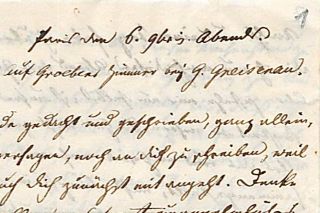 Paris den 6. 9br. Abends.
auf Groebens Zimmer bey G. Gneisenau.
gedacht und geschrieben, ganz allein,
versagen, noch an dich zu schreiben, weil
auch dich zunächst mit angeht. Denke